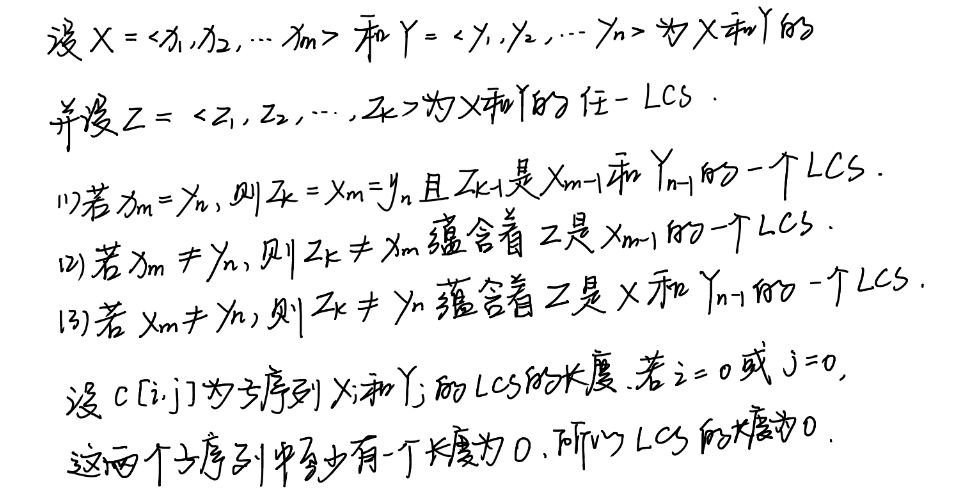 设 X = <x₁, x₂, ⋯ xₘ> 和 Y = <y₁, y₂, ⋯ yₙ> 为 X 和 Y 的
并设 Z = <z₁, z₂, ⋯, zₖ> 为 X 和 Y 的 任一 LCS .
(1) 若 xₘ = yₙ, 则 zₖ = xₘ = yₙ 且 Zₖ₋₁ 是 Xₘ₋₁ 和 Yₙ₋₁ 的一个 LCS .
(2) 若 xₘ ≠ yₙ, 则 zₖ ≠ xₘ 蕴含着 Z 是 Xₘ₋₁ 的一个 LCS .
(3) 若 xₘ ≠ yₙ, 则 zₖ ≠ yₙ 蕴含着 Z 是 X 和 Yₙ₋₁ 的一个 LCS .
设 c[i,j] 为子序列 Xᵢ 和 Yⱼ 的 LCS 的长度. 若 i = 0 或 j = 0,
这两个子序列中至少有一个长度为 0, 所以 LCS 的长度为 0 .